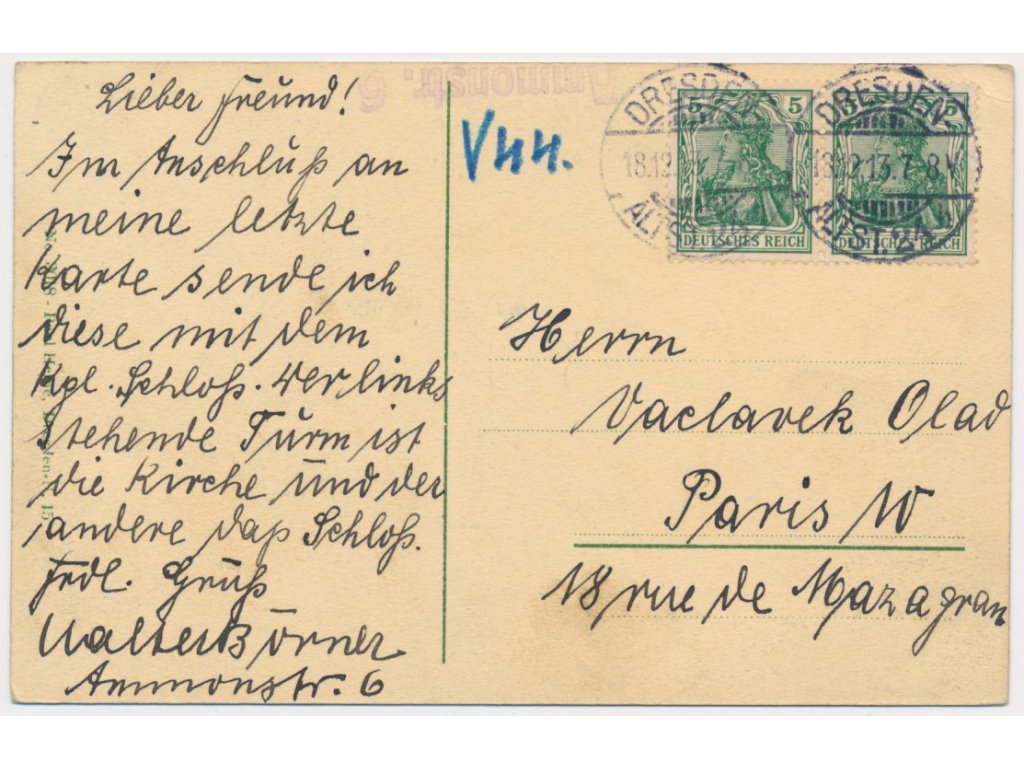 Lieber Freund!
Im Anschluß an
meine letzte
Karte sende ich
diese mit dem
Kgl. Schloß. Der links
stehende Turm ist
die Kirche und der
andere daß Schloß.
Frdl. Gruß
Walter Börner
Ammonstr. 6
Ammonstr. 6
V44.
DRESDEN
18.12.
ALTST.
DRESDEN
18.12.13. 7-8 V.
ALTST. 24
5 5
DEUTSCHES REICH
5
DEUTSCHES REICH
Herrn
Vaclavek Olad
Paris W
18 rue de Mazagran